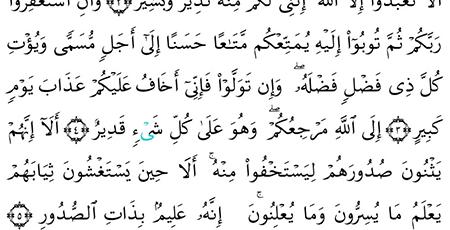 أَلَّا تَعْبُدُوٓا۟ إِلَّا ٱللَّهَ ۚ إِنَّنِى لَكُم مِّنْهُ نَذِيرٌ وَبَشِيرٌ ﴿٢﴾ وَأَنِ ٱسْتَغْفِرُوا۟
رَبَّكُمْ ثُمَّ تُوبُوٓا۟ إِلَيْهِ يُمَتِّعْكُم مَّتَٰعًا حَسَنًا إِلَىٰٓ أَجَلٍ مُّسَمًّى وَيُؤْتِ
كُلَّ ذِى فَضْلٍ فَضْلَهُۥ ۖ وَإِن تَوَلَّوْا۟ فَإِنِّىٓ أَخَافُ عَلَيْكُمْ عَذَابَ يَوْمٍ
كَبِيرٍ ﴿٣﴾ إِلَى ٱللَّهِ مَرْجِعُكُمْ ۖ وَهُوَ عَلَىٰ كُلِّ شَىْءٍ قَدِيرٌ ﴿٤﴾ أَلَآ إِنَّهُمْ
يَثْنُونَ صُدُورَهُمْ لِيَسْتَخْفُوا۟ مِنْهُ ۚ أَلَا حِينَ يَسْتَغْشُونَ ثِيَابَهُمْ
يَعْلَمُ مَا يُسِرُّونَ وَمَا يُعْلِنُونَ ۚ إِنَّهُۥ عَلِيمٌۢ بِذَاتِ ٱلصُّدُورِ ﴿٥﴾